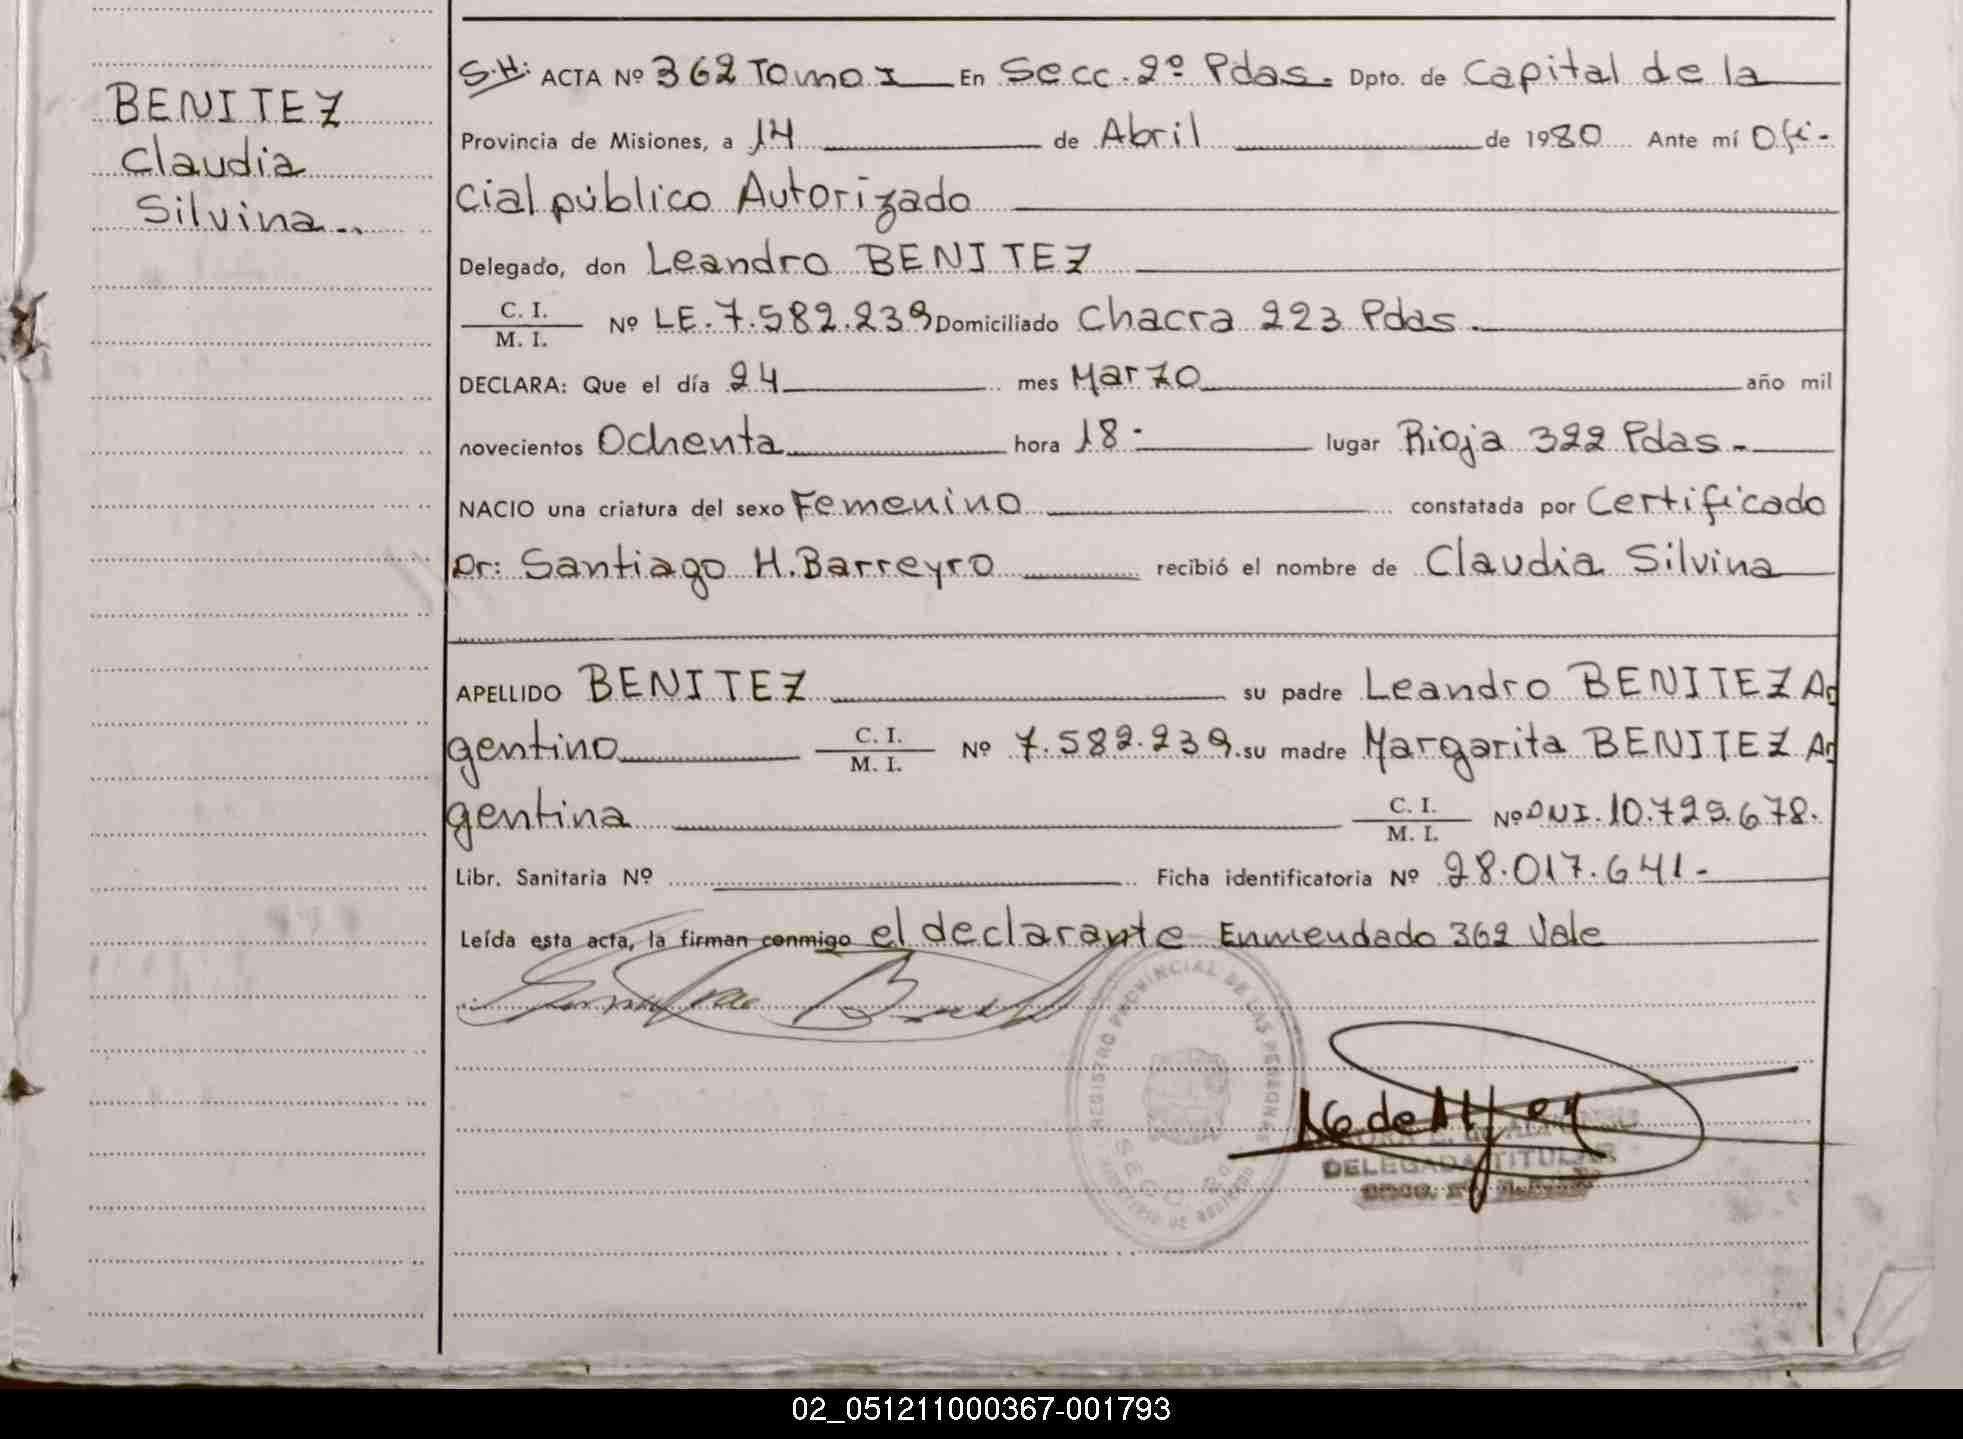 BENITEZ
Claudia
Silvina..
S.H: ACTA Nº 362 Tomo I En Secc. 2º Pdas. Dpto. de Capital de la
Provincia de Misiones, a 14 de Abril de 1980 Ante mí Ofi-
cial público Autorizado
Delegado, don Leandro BENITEZ
C. I.
M. I. Nº LE. 7.582.239 Domiciliado Chacra 223 Pdas.
DECLARA: Que el día 24 mes Marzo año mil
novecientos Ochenta hora 18- lugar Rioja 322 Pdas-
NACIO una criatura del sexo Femenino constatada por Certificado
Dr: Santiago H. Barreyro recibió el nombre de Claudia Silvina
APELLIDO BENITEZ su padre Leandro BENITEZ Ar
gentino C. I. M. I. Nº 7.582.239. su madre Margarita BENITEZ Ar
gentina C. I. M. I. Nº DNI. 10.729.678.
Libr. Sanitaria Nº Ficha identificatoria Nº 28.017.641-
Leída esta acta, la firman conmigo el declarante Enmendado 362 Vale
REGISTRO PROVINCIAL DE LAS PERSONAS
SECC.
DELEGADA TITULAR
02_051211000367-001793